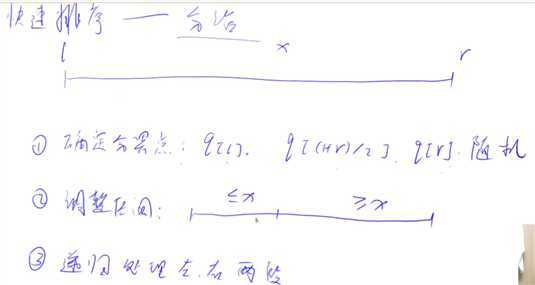 快速排序 — 分治
l x r
① 确定分界点：q[l]. q[(l+r)/2] q[r]. 随机
② 调整区间： ≤x ≥x
③ 递归处理左.右两段